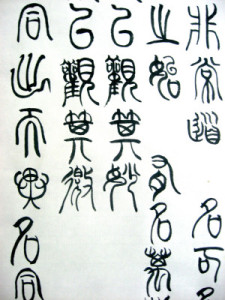 非常道 名可名
之始 有名萬
以觀其妙
以觀其徼
同出而異名同